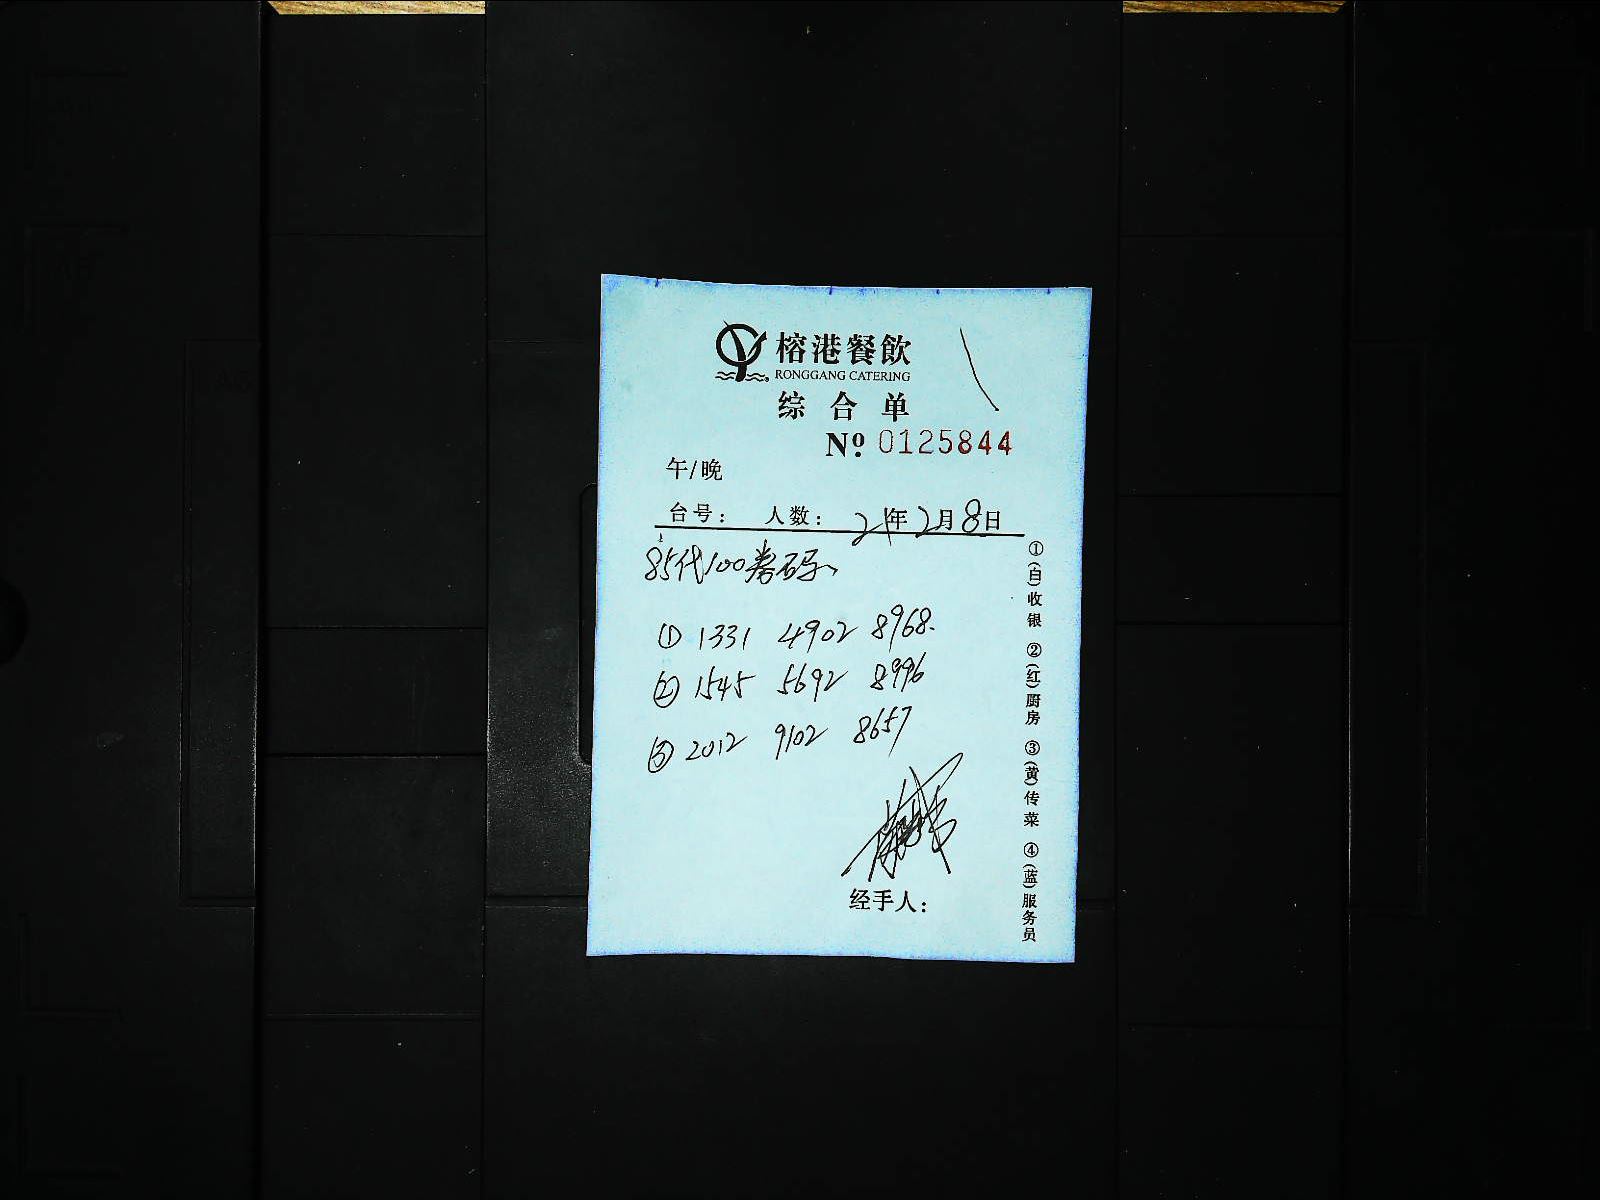 榕港餐飲
RONGGANG CATERING
综合单
№ 0125844
午/晚
台号： 人数： 21年2月8日
85代100券码、
① 1331 4902 8968.
② 1545 5692 8996
③ 2012 9102 8657
经手人：
①(白)收银 ②(红)厨房 ③(黄)传菜 ④(蓝)服务员